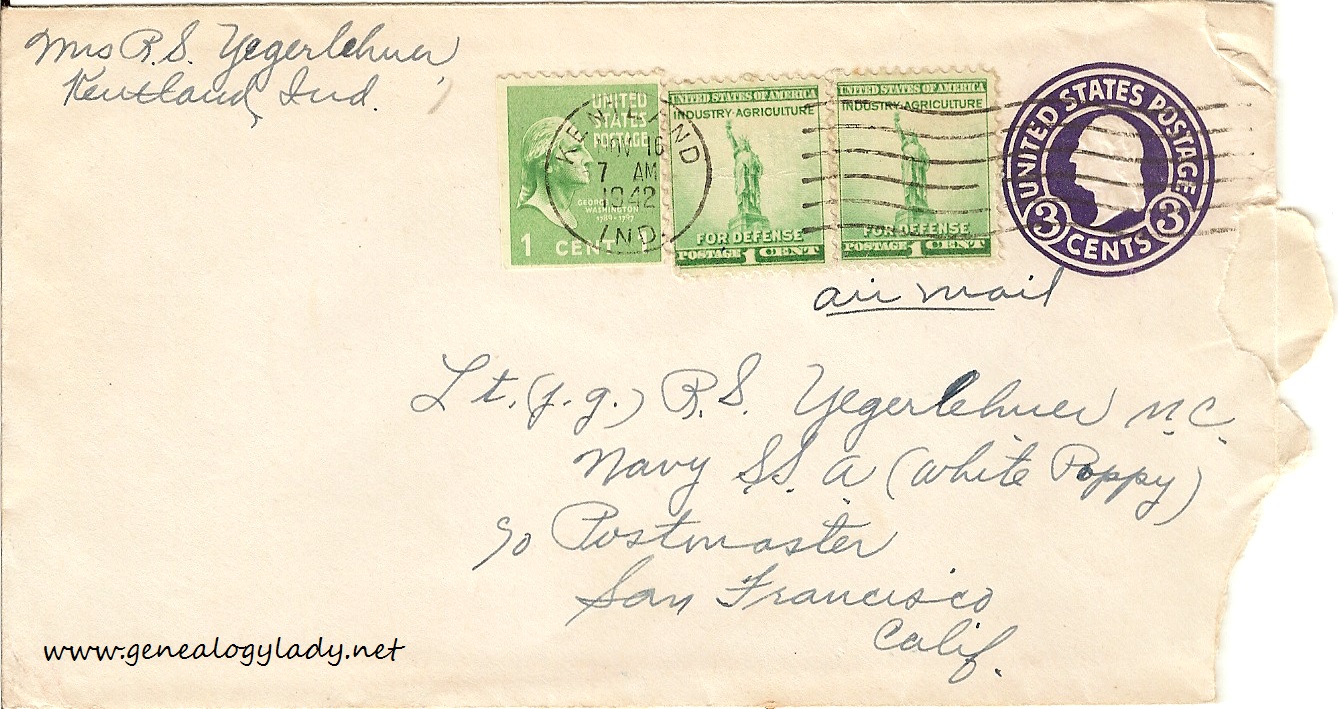 Mrs R.S. Yegerlehner
Kentland, Ind.
UNITED
STATES
POSTAGE
GEORGE
WASHINGTON
1789-1797
1 CENT
KENTLAND
NOV 16
7 AM
1942
IND.
UNITED STATES OF AMERICA
INDUSTRY·AGRICULTURE
FOR DEFENSE
POSTAGE 1 CENT
UNITED STATES OF AMERICA
INDUSTRY·AGRICULTURE
FOR DEFENSE
POSTAGE 1 CENT
UNITED STATES POSTAGE
3 3
CENTS
air mail
Lt. (j.g.) R.S. Yegerlehner M.C.
Navy S.S. A (White Poppy)
c/o Postmaster
San Francisco
Calif.
www.genealogylady.net